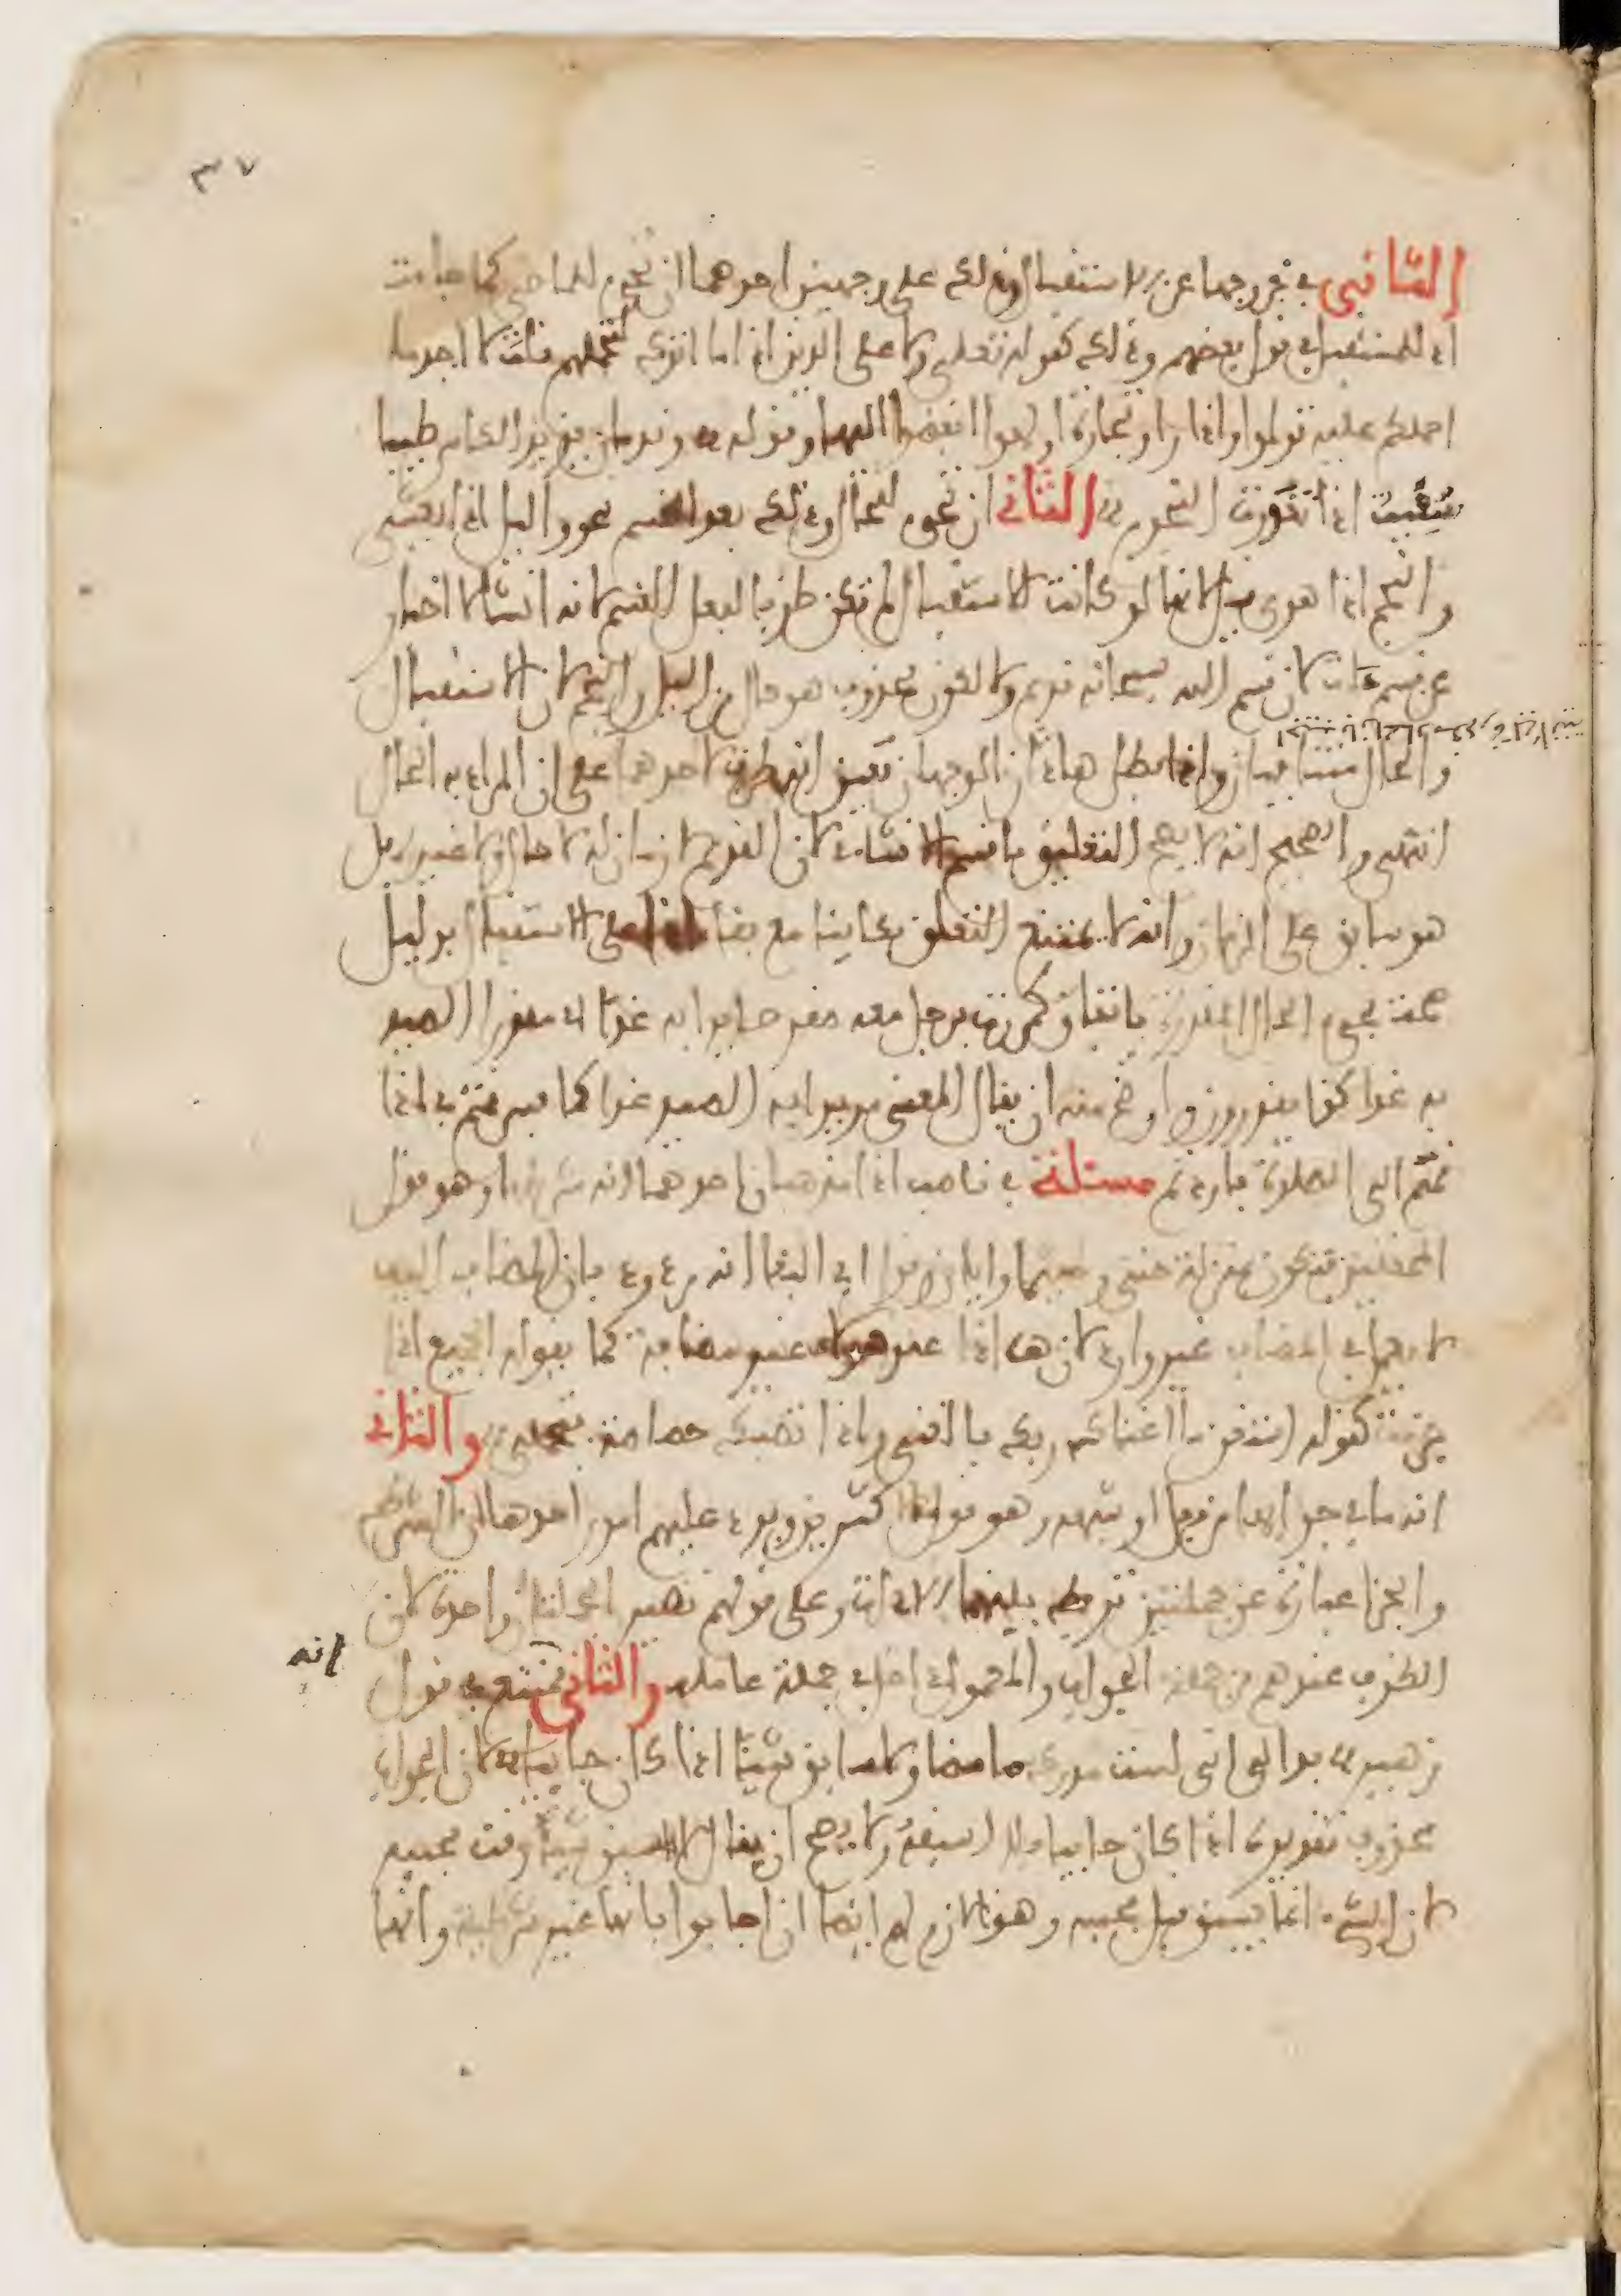 ٣٧
الثاني في خروجها عن الاستقبال وذلك على وجهين احدهما ان تجيء للماضي كما جاءت
اذ للمستقبل في قول بعضهم وذلك كقوله تعلى ولا على الذين اذا ما اتوك لتحملهم قلت لا اجد ما
احملكم عليه تولوا واذا راوا تجارة او لهوا انفضوا اليها وقوله وندمان يزيد الكاس طيبا
سقيت اذا تغورت النجوم الثاني ان تجيء للحال وذلك بعد القسم نحو واليل اذا يغشى
والنجم اذا هوى قيل لانها لو كانت للاستقبال لم تكن ظرفا لفعل القسم لانه انشاء لا اخبار
عن قسم يات لان قسم الله سبحانه قديم ولا لكون محذوف هو حال من اليل والنجم لان الاستقبال
والحال متنافيان واذا بطل هاذان الوجهان تعين انه ظرف لاحدهما على ان المراد به الحال
انتهى والصحيح انه لا يصح التعليق باقسم الانشاءي لان القديم لا زمان له لا حال ولا غيره بل
هو سابق على الزمان وانه لا يمتنع التعلق بكاينا مع بقاء اذا على الاستقبال بدليل
صحة مجيء الحال المقدرة باتفاق كمررت برجل معه صقر صايدا به غدا اي مقدرا الصيد
به غدا كذا يقدرون واوضح منه ان يقال المعنى مريدا به الصيد غدا كما فسر قمتم في اذا
قمتم الى الصلاة باردتم مسئلة في ناصب اذا مذهبان احدهما انه شرطها وهو قول
المحققين فتكون بمنزلة متى وحيثما وايان وقول ابي البقا انه مردود بان المضاف اليه
لا يعمل في المضاف غير وارد لان اذا عند هولاء غير مضافة كما يقوله الجميع اذا
جزمت كقوله استغن ما اغناك ربك بالغنى واذا تصبك خصاصة فتحمل والثاني
انه ما في جوابها من فعل او شبهه وهو قول الاكثرين ويرد عليهم امور احدها ان الشرط
والجزا عبارة عن جملتين تربط بينهما الاداة وعلى قولهم تصير الجملتان واحدة لان
الظرف عندهم من جملة الجواب والمعمول داخل في جملة عامله والثاني انه ممتنع في قول
زهير بدا لي اني لست مدرك ما مضا ولا سابق شيئا اذا كان جايا لان الجواب
محذوف تقديره اذا كان جايا فلا اسبقه ولا يصح ان يقال لا اسبق شيئا وقت مجيئه
لان الشيء انما يسبق قبل مجيئه وهذا لازم لهم ايضا ان اجابوا بانها غير شرطية وانها